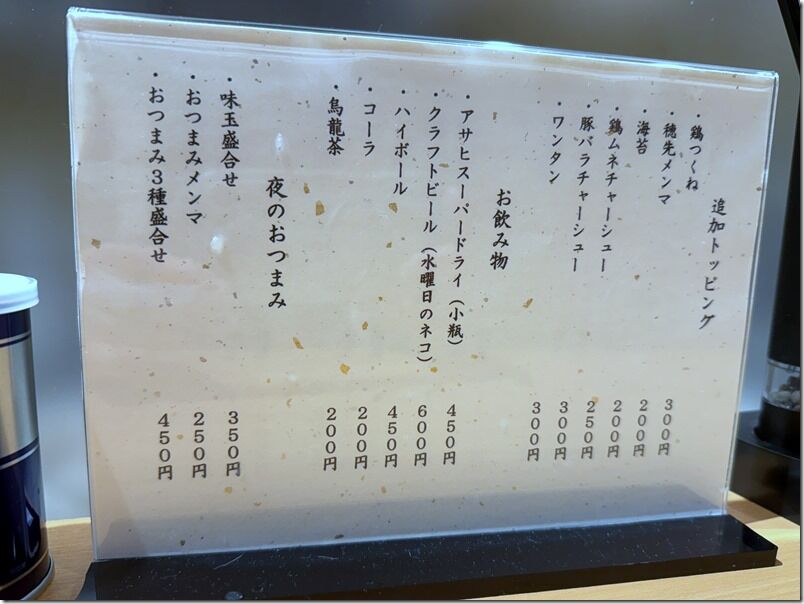 追加トッピング
・鶏つくね 300円
・穂先メンマ 200円
・海苔 200円
・鶏ムネチャーシュー 250円
・豚バラチャーシュー 300円
・ワンタン 300円
お飲み物
・アサヒスーパードライ（小瓶） 450円
・クラフトビール（水曜日のネコ） 600円
・ハイボール 450円
・コーラ 200円
・烏龍茶 200円
夜のおつまみ
・味玉盛合せ 350円
・おつまみメンマ 250円
・おつまみ3種盛合せ 450円